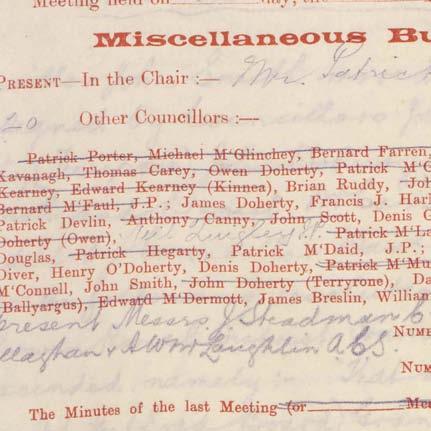 Meeting held on day, the
Miscellaneous Bu
PRESENT—In the Chair :— Mr. Patrick
20 Other Councillors :—
Patrick Porter, Michael M'Glinchey, Bernard Farren,
Kavanagh, Thomas Carey, Owen Doherty, Patrick M'G
Kearney, Edward Kearney (Kinnea), Brian Ruddy, Joh
Bernard M'Faul, J.P.; James Doherty, Francis J. Harl
Patrick Devlin, Anthony Canny, John Scott, Denis G
Doherty (Owen), Patrick M'La
Douglas, Patrick Hegarty, Patrick M'Daid, J.P.;
Diver, Henry O'Doherty, Denis Doherty, Patrick M'Mu
M'Connell, John Smith, John Doherty (Terryrone), Da
Ballyargus), Edward M'Dermott, James Breslin, William
present Messrs J. Steadman C
NUMB
llaghan & A W McLaughlin A.C.S.
NUM
The Minutes of the last Meeting (or Mee